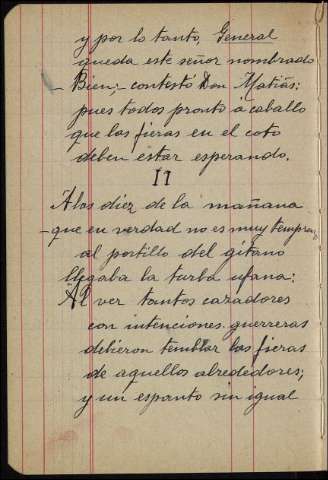 y por lo tanto, General
queda este señor nombrado
- Bien,- contestó Don Matias:
pues todos pronto á caballo
que las fieras en el coto
deben estar esperando.
II
A las diez de la mañana
- que en verdad no es muy tempra-
al portillo del gitano
llegaba la turba ufana:
Al ver tantos cazadores
con intenciones guerreras
debieron temblar las fieras
de aquellos alrededores;
y un espanto sin igual